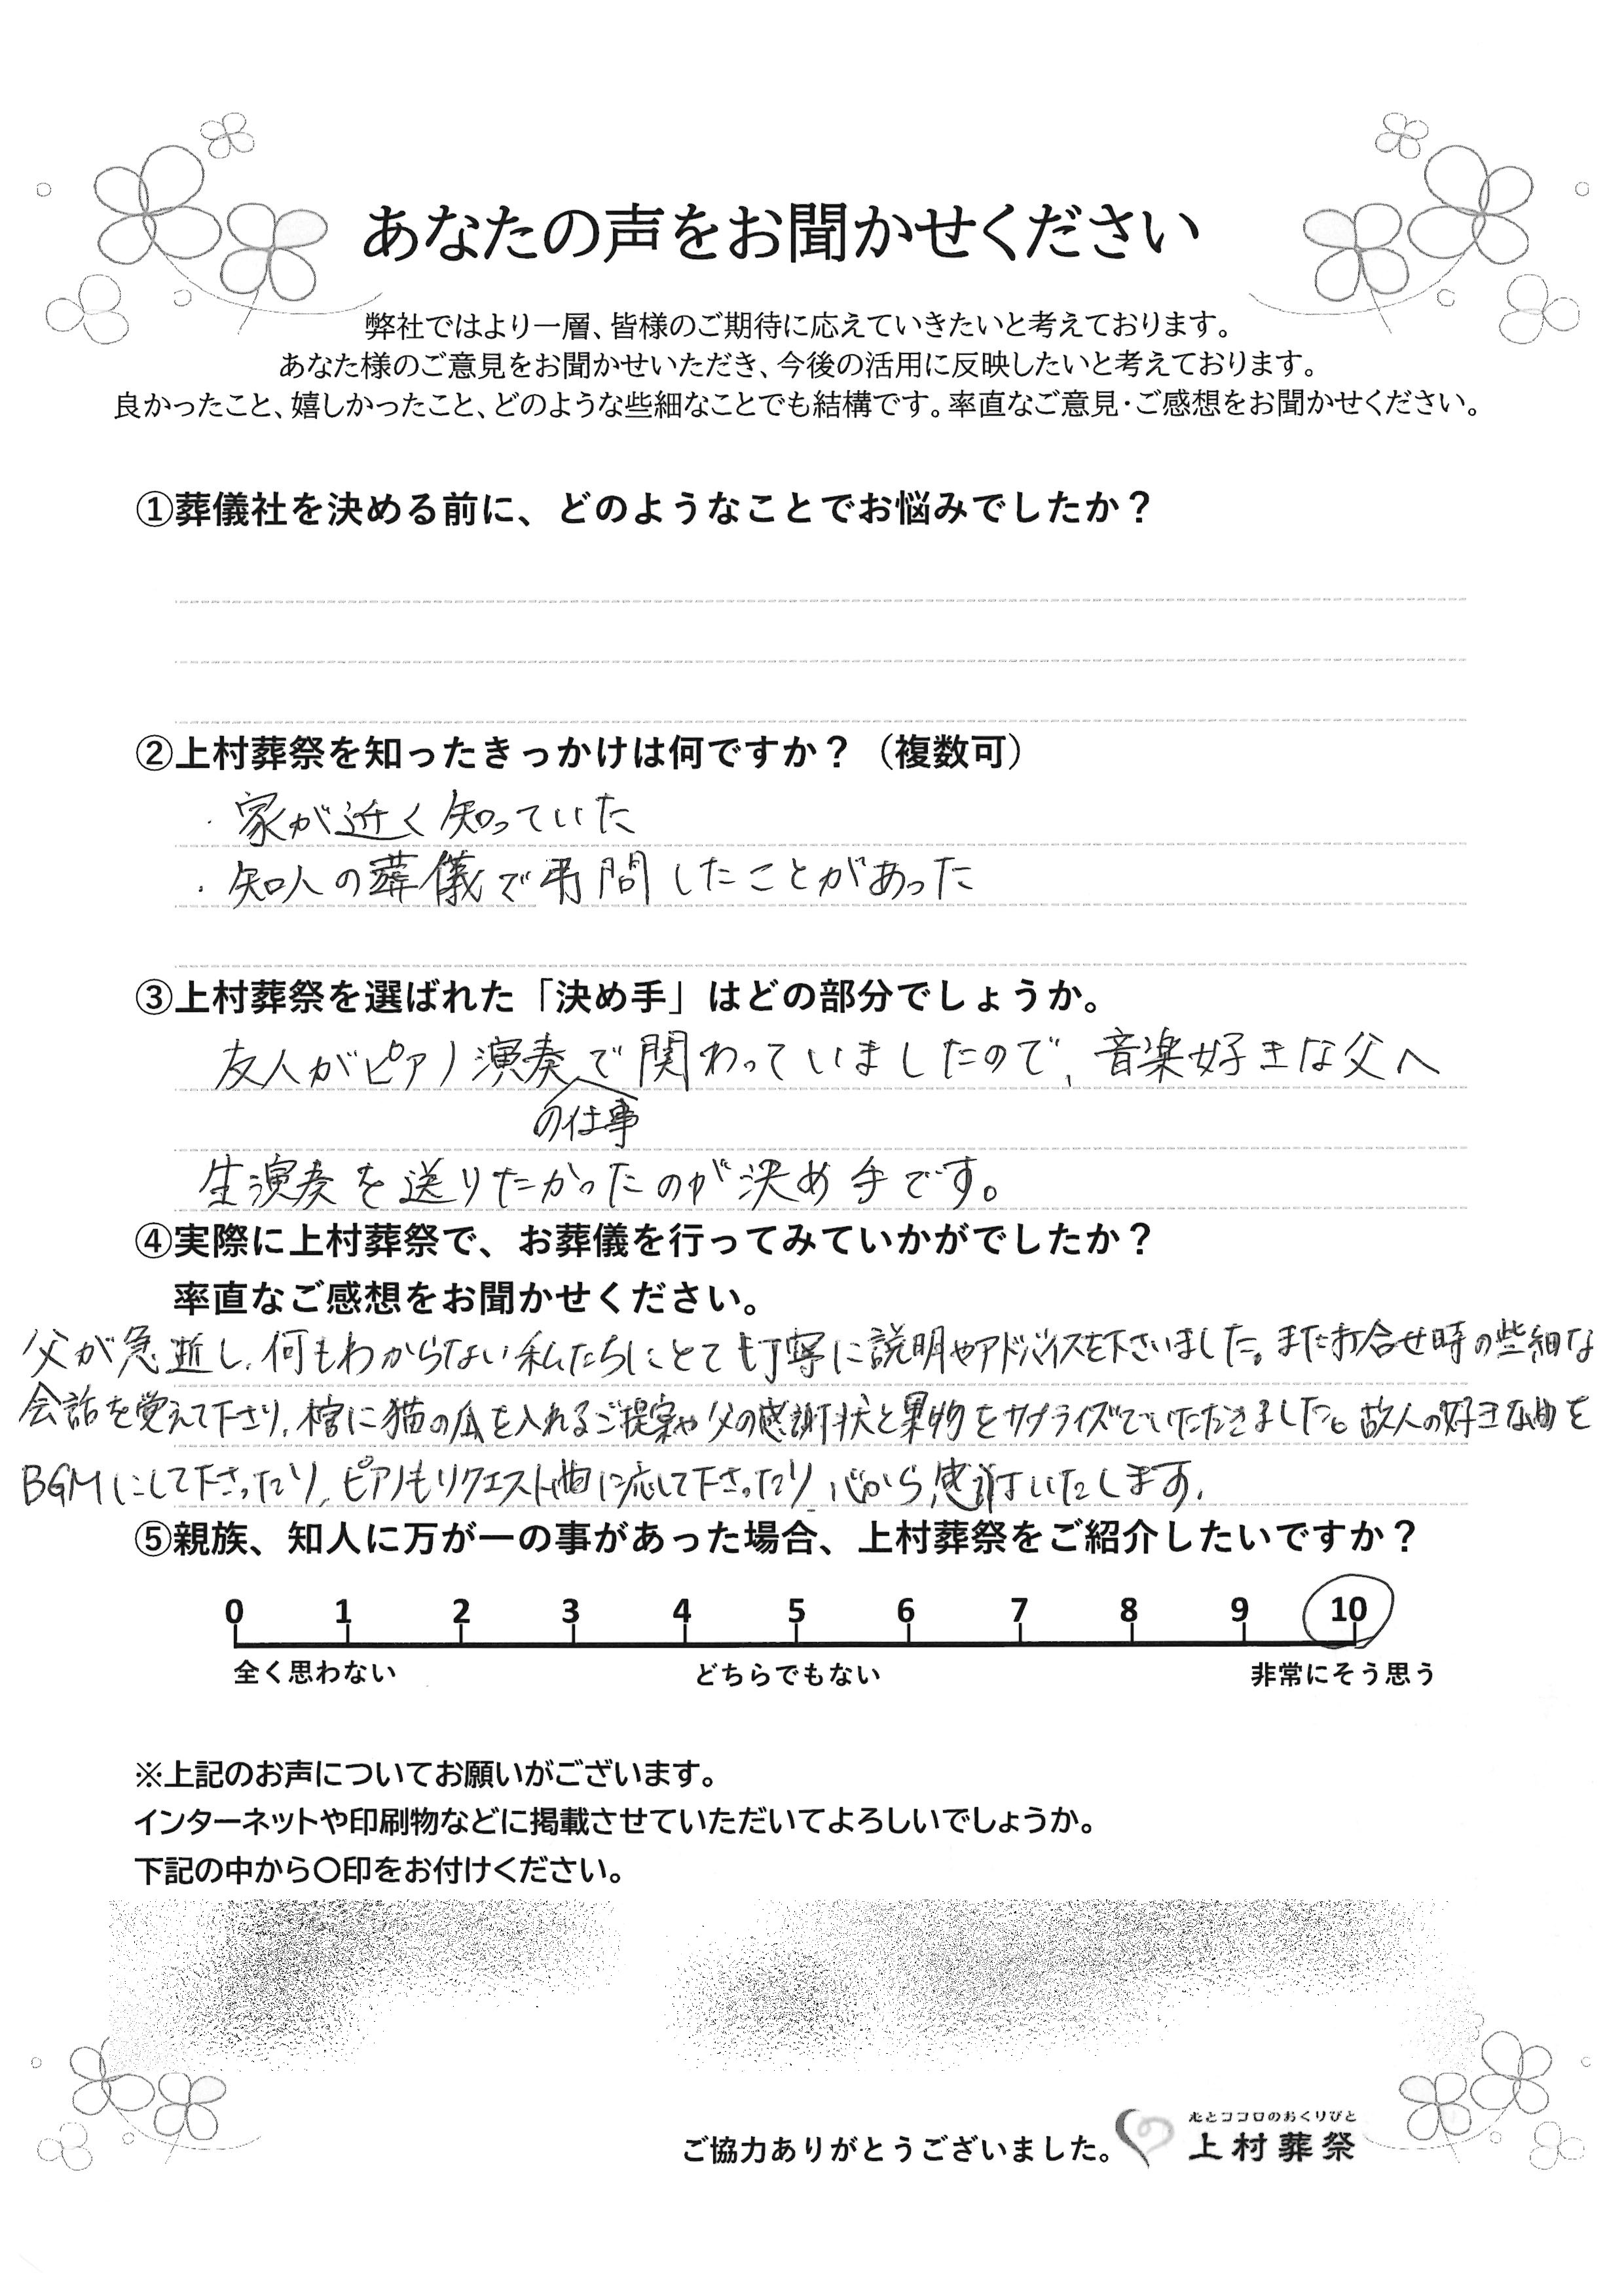 あなたの声をお聞かせください
弊社ではより一層、皆様のご期待に応えていきたいと考えております。
あなた様のご意見をお聞かせいただき、今後の活用に反映したいと考えております。
良かったこと、嬉しかったこと、どのような些細なことでも結構です。率直なご意見・ご感想をお聞かせください。
①葬儀社を決める前に、どのようなことでお悩みでしたか？
②上村葬祭を知ったきっかけは何ですか？（複数可）
・家が近く知っていた
・知人の葬儀で弔問したことがあった
③上村葬祭を選ばれた「決め手」はどの部分でしょうか。
友人がピアノ演奏で関わっていましたので、音楽好きな父へ
の仕事
生演奏を送りたかったのが決め手です。
④実際に上村葬祭で、お葬儀を行ってみていかがでしたか？
率直なご感想をお聞かせください。
父が急逝し、何もわからない私たちにとて丁寧に説明やアドバイスを下さいました。また打合せ時の些細な
会話を覚えて下さり、棺に猫の爪を入れるご提案や父の感謝状と果物をサプライズでいただきました。故人の好きな曲を
BGMにして下さったり、ピアノもリクエスト曲に応して下さったり、心から感謝いたします。
⑤親族、知人に万が一の事があった場合、上村葬祭をご紹介したいですか？
0 1 2 3 4 5 6 7 8 9 10
全く思わない どちらでもない 非常にそう思う
※上記のお声についてお願いがございます。
インターネットや印刷物などに掲載させていただいてよろしいでしょうか。
下記の中から〇印をお付けください。
ココロのおくりびと
ご協力ありがとうございました。 上村葬祭